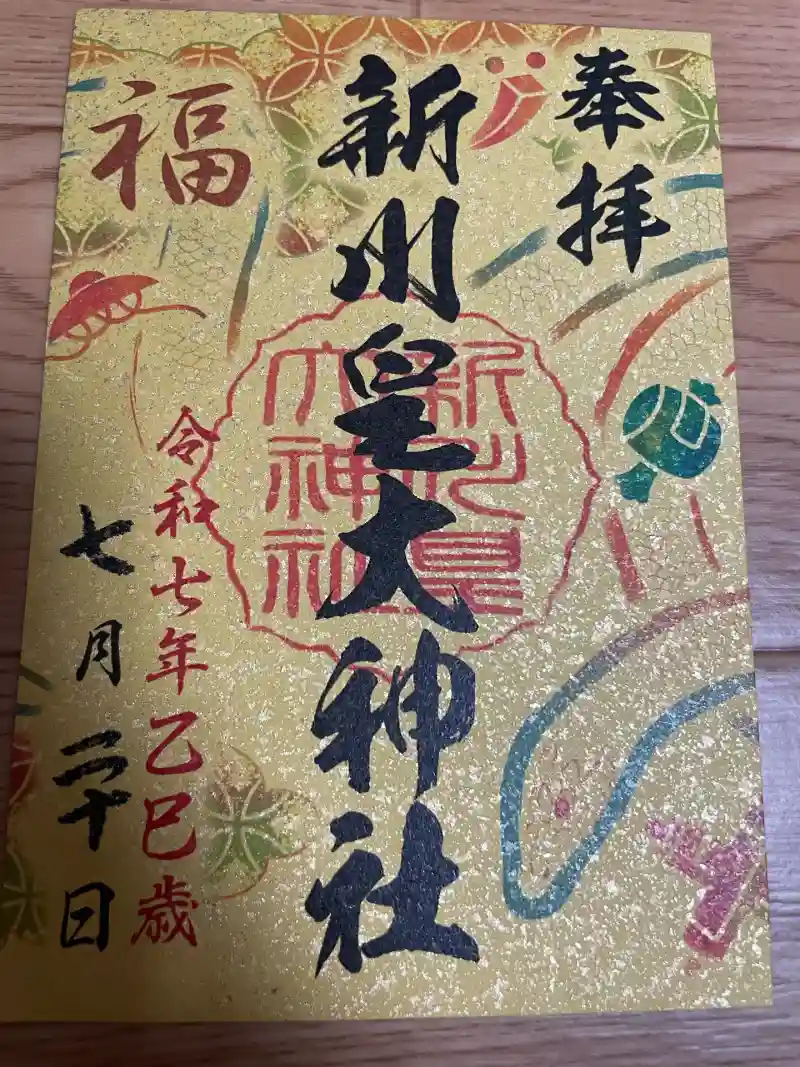 奉拝
新川皇大神社
新川皇
大神社
福
令和七年乙巳歳
七月二十日